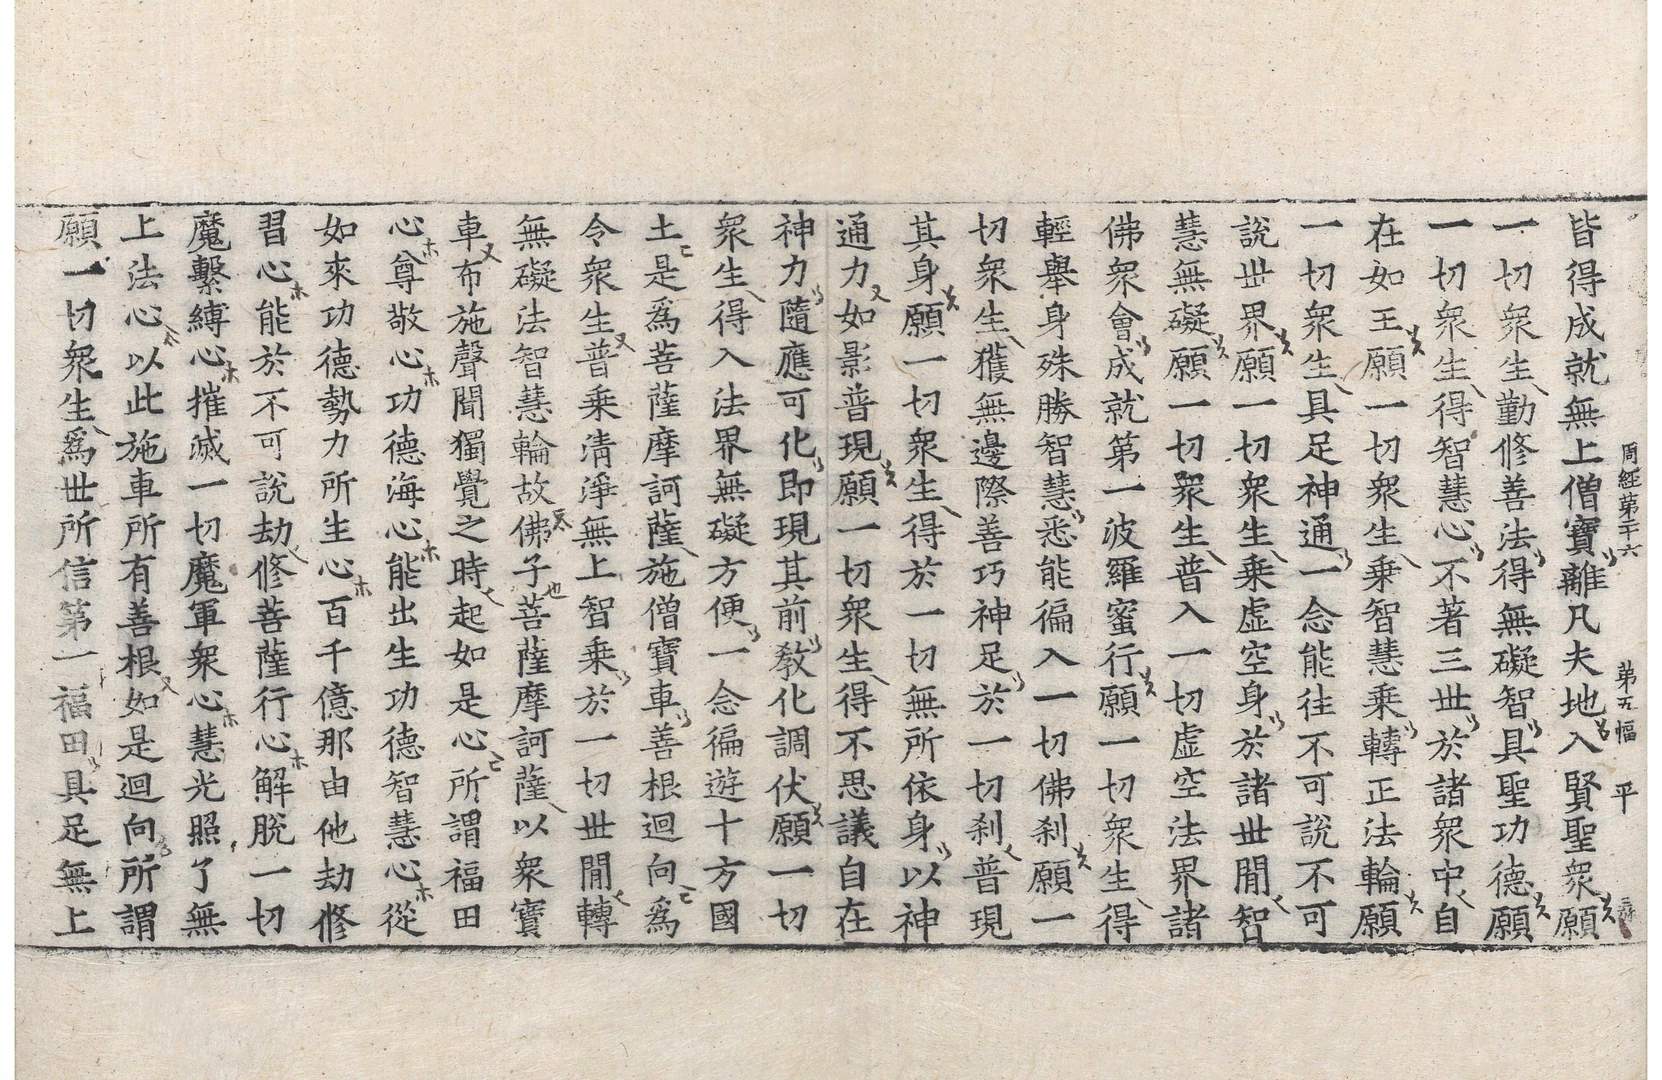 周經第二十六 第五幅 平
皆得成就無上僧寶離凡夫地入賢聖衆願
一切衆生勤修善法得無礙智具聖功德願
一切衆生得智慧心不著三世於諸衆中自
在如王願一切衆生乘智慧乘轉正法輪願
一切衆生具足神通一念能往不可說不可
說世界願一切衆生乘虛空身於諸世閒智
慧無礙願一切衆生普入一切虛空法界諸
佛衆會成就第一波羅蜜行願一切衆生得
輕舉身殊勝智慧悉能徧入一切佛刹願一
切衆生獲無邊際善巧神足於一切刹普現
其身願一切衆生得於一切無所依身以神
通力如影普現願一切衆生得不思議自在
神力隨應可化即現其前敎化調伏願一切
衆生得入法界無礙方便一念徧遊十方國
土是爲菩薩摩訶薩施僧寶車善根迴向爲
令衆生普乘淸淨無上智乘於一切世閒轉
無礙法智慧輪故佛子菩薩摩訶薩以衆寶
車布施聲聞獨覺之時起如是心所謂福田
心尊敬心功德海心能出生功德智慧心從
如來功德勢力所生心百千億那由他劫修
習心能於不可說劫修菩薩行心解脫一切
魔繫縛心摧滅一切魔軍衆心慧光照了無
上法心以此施車所有善根如是迴向所謂
願一切衆生爲世所信第一福田具足無上